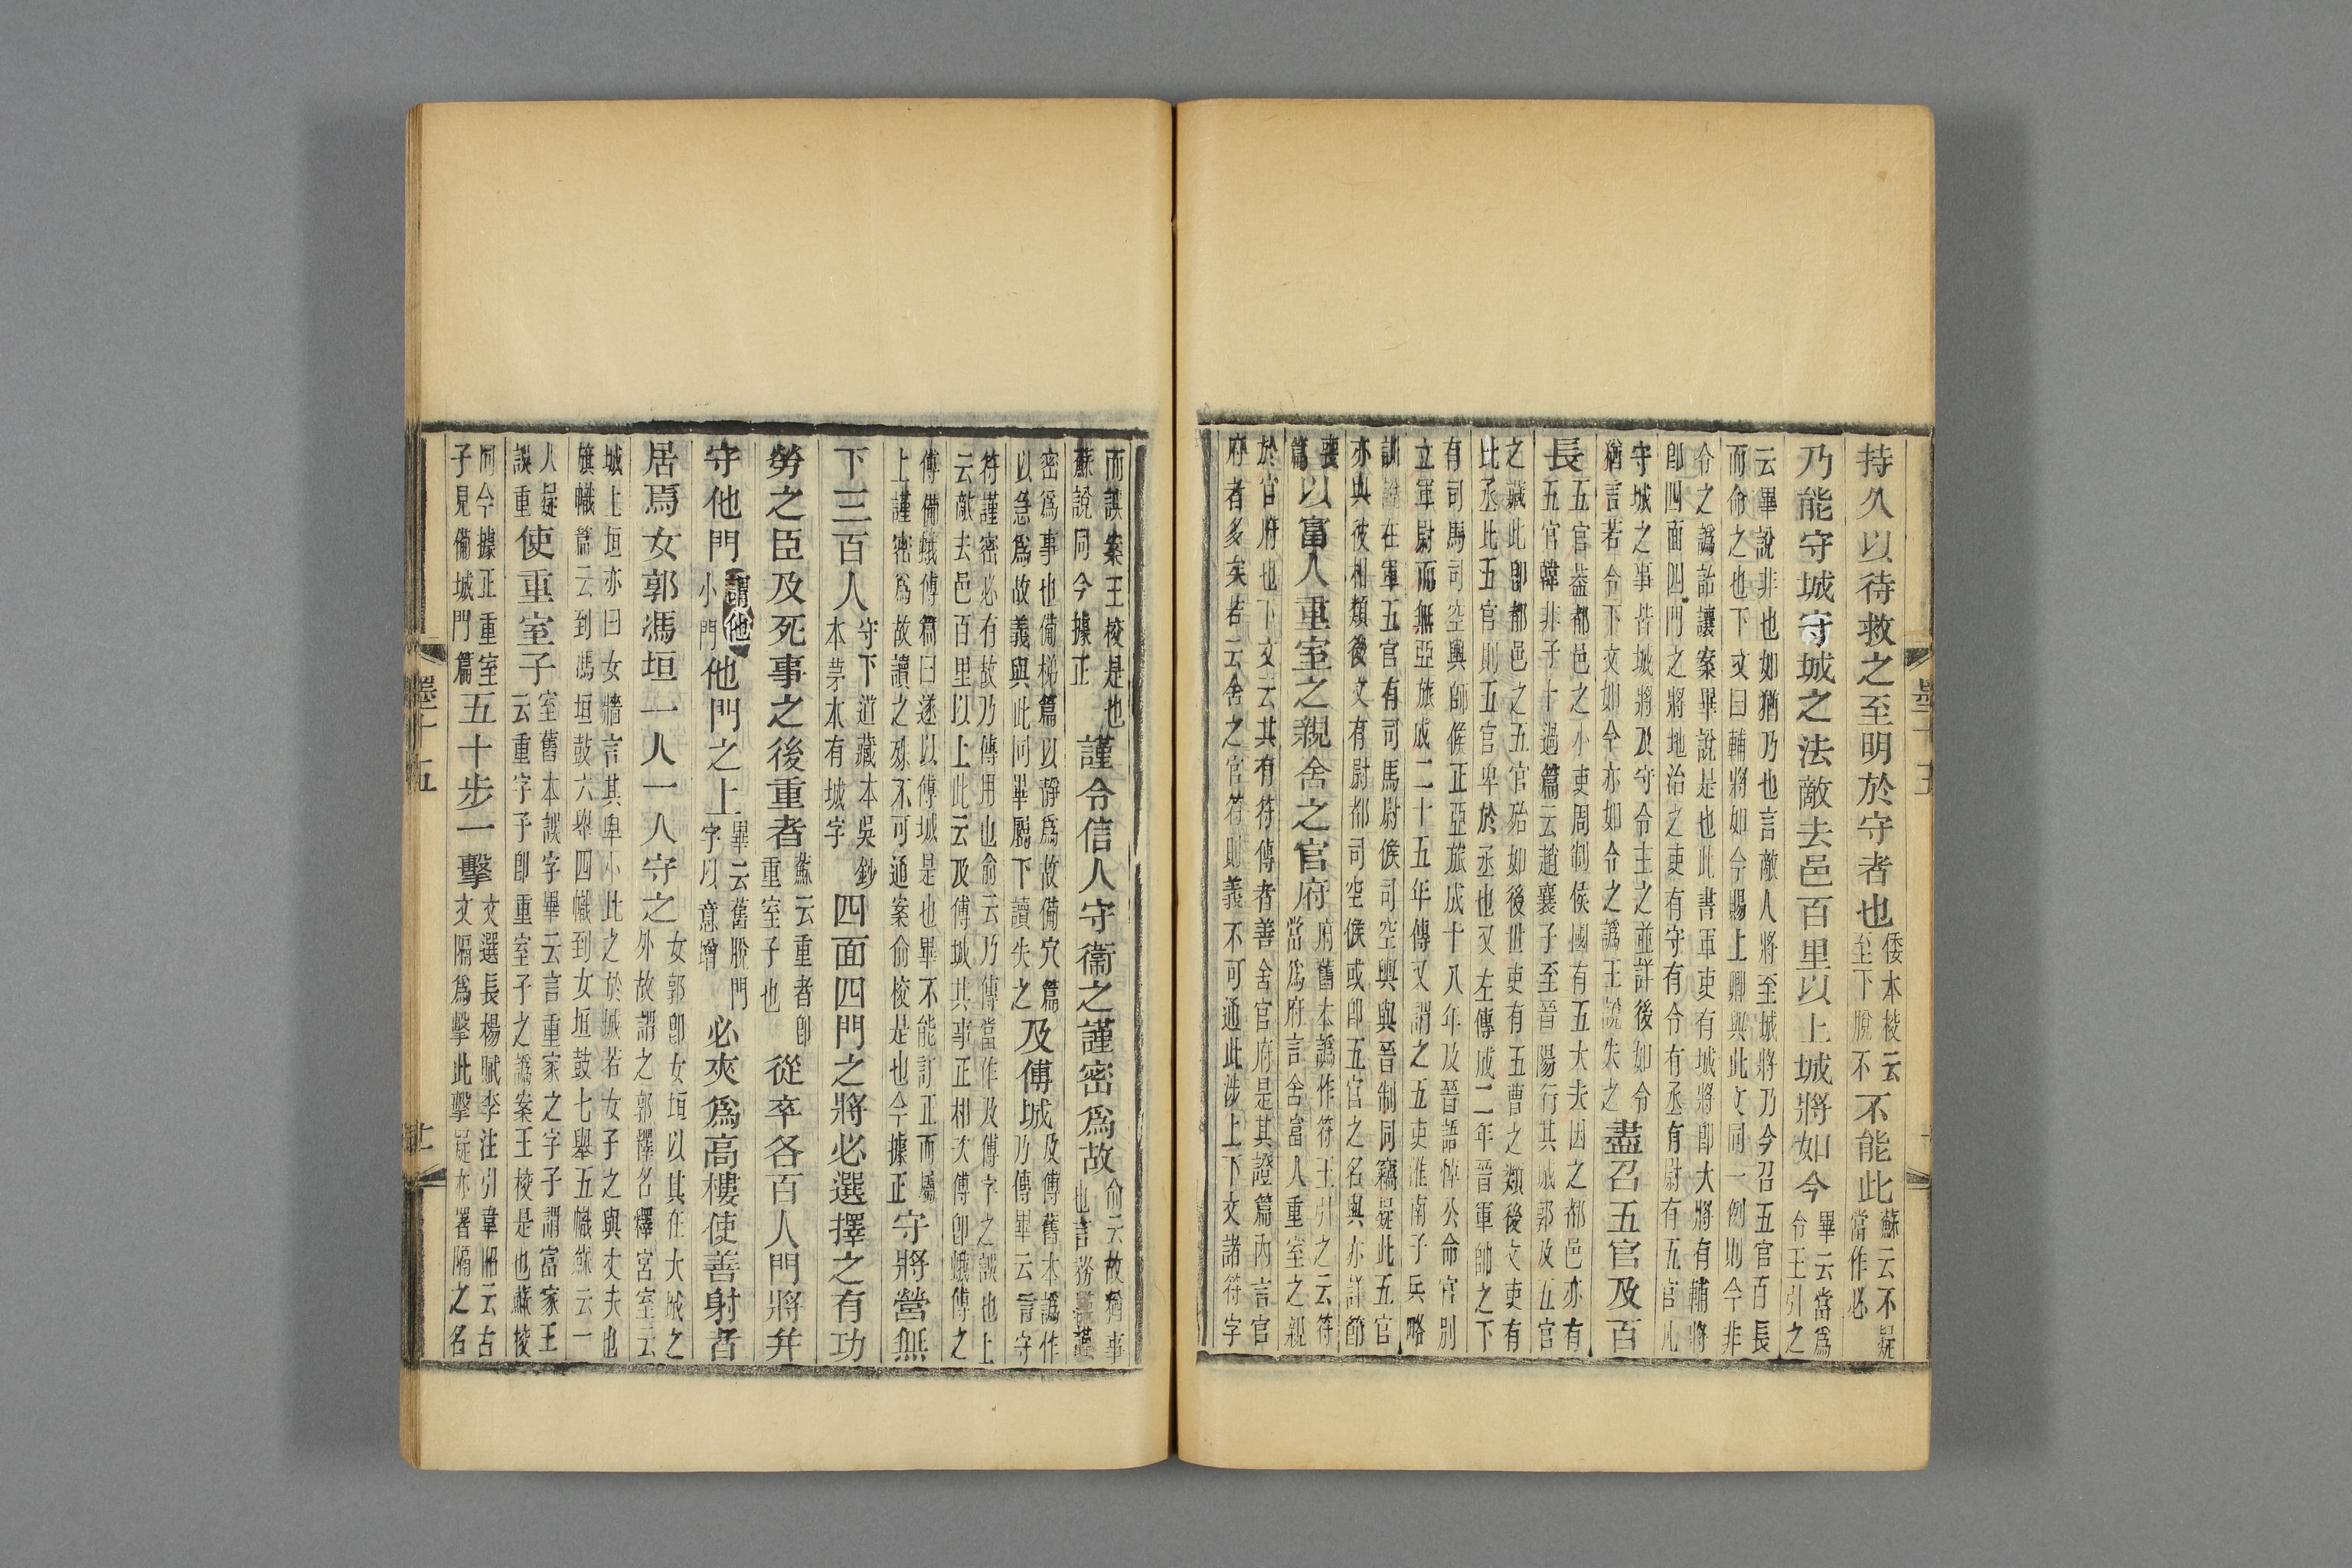 持久以待救之至明於守者也倭本校云至下脫不不能此蘇云不疑當作必
乃能守城守城之法敵去邑百里以上城將如今畢云當爲令王引之
云畢說非也如猶乃也言敵人將至城將乃今召五官百長
而命之也下文曰輔將如今賜上卿與此文同一例則今非
令之譌詒讓案畢說是也此書軍吏有城將卽大將有輔將
卽四面四門之將地治之吏有守有令有丞有尉有五官凡
守城之事皆城將及守令主之並詳後如令
猶言若令下文如今亦如令之譌王說失之盡召五官及百
長五官葢都邑之小吏周制侯國有五大夫因之都邑亦有
五官韓非子十過篇云趙襄子至晉陽行其城郭及五官
之藏此卽都邑之五官殆如後世吏有五曹之類後文吏有
比丞比五官則五官卑於丞也又左傳成二年晉軍帥之下
有司馬司空輿師候正亞旅成十八年及晉語悼公命官別
立軍尉而無亞旅成二十五年傳又謂之五吏淮南子兵略
訓說在軍五官有司馬尉候司空輿與晉制同竊疑此五官
亦與彼相類後文有尉都司空候或卽五官之名與亦詳節
喪篇以富人重室之親舍之官府府舊本譌作符王引之云符當爲府言舍富人重室之親
於官府也下文云其有符傳者善舍官府是其證篇內言官
府者多矣若云舍之官符則義不可通此涉上下文諸符字
墨十五
而誤案王校是也
蘇說同今據正謹令信人守衞之謹密爲故俞云故猶事也言務謹
密爲事也備梯篇以靜爲故備穴篇
以急爲故義與此同畢屬下讀失之及傅城及傅舊本譌作乃傳畢云言守
符謹密必有故乃傳用也俞云乃傳當作及傅字之誤也上
云敵去邑百里以上此云及傅城其事正相次傅卽蛾傅之
傅備蛾傅篇曰遂以傅城是也畢不能訂正而屬
上謹密爲故讀之殊不可通案俞校是也今據正守將營無
下三百人守下道藏本吳鈔本茅本有城字四面四門之將必選擇之有功
勞之臣及死事之後重者蘇云重者卽重室子也從卒各百人門將幷
守他門謂他小門他門之上畢云舊脫門字以意增必夾爲高樓使善射者
居焉女郭馮垣一人一人守之女郭卽女垣以其在大城之外故謂之郭釋名釋宮室云
城上垣亦曰女牆言其卑小比之於城若女子之與丈夫也
旗幟篇云到馮垣鼓六舉四幟到女垣鼓七舉五幟蘇云一
人疑誤重使重室子室舊本誤字畢云言重家之字子謂富家王云重字子卽重室子之譌案王校是也蘇校
同今據正重室子見備城門篇五十步一擊文選長楊賦李注引韋昭云古文隔爲擊此擊疑亦署隔之名
墨十五
十一